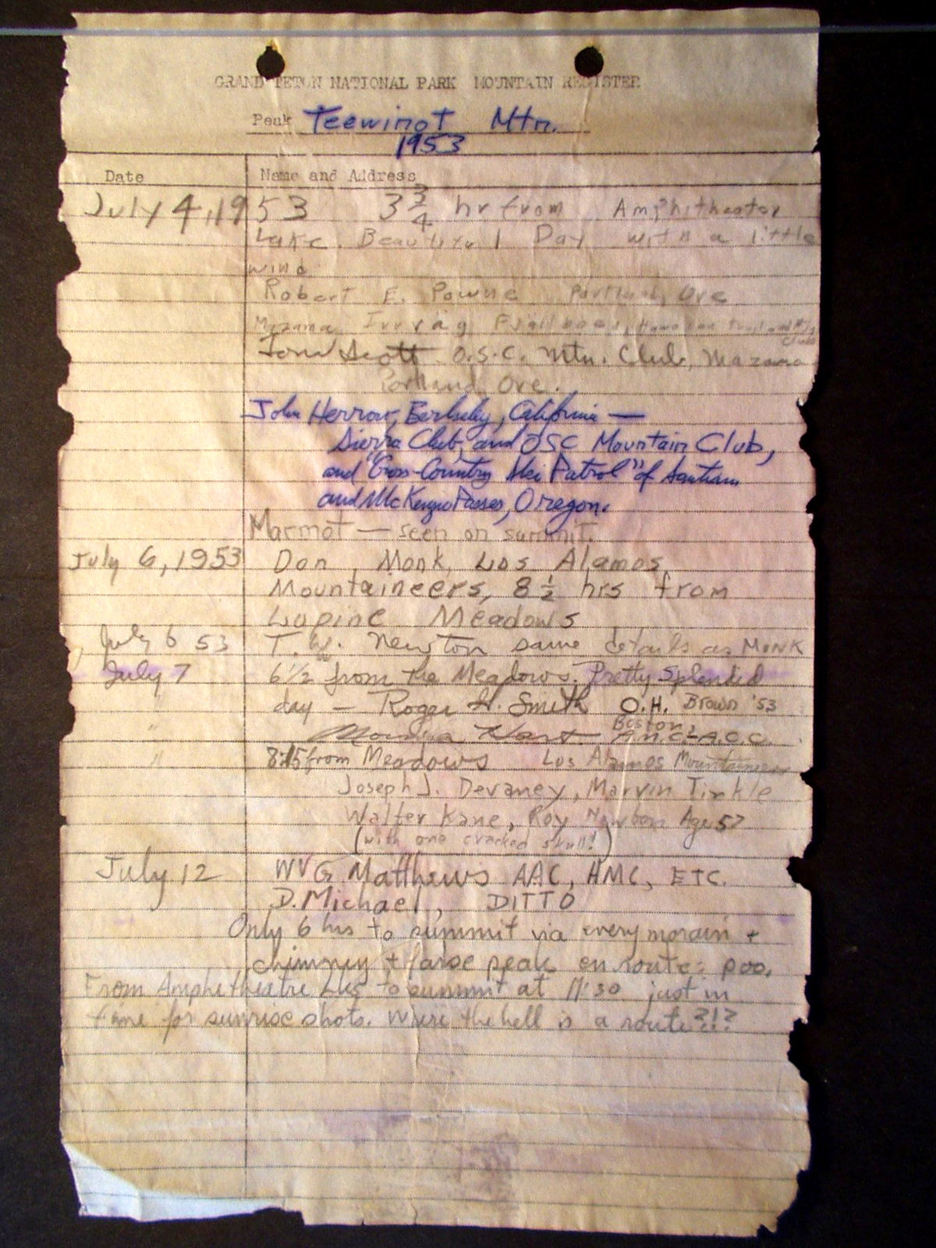 GRAND TETON NATIONAL PARK MOUNTAIN REGISTER
Peak Teewinot Mtn.
1953
Date Name and Address
July 4, 1953 3 3/4 hr from Amphitheater
Lake. Beautiful Day with a little
wind
Robert E. Portland, Ore
Mazama
Tom Scott O.S.C. Mtn. Club, Mazama
Portland, Ore.
John Herrow, Berkeley, California —
Sierra Club, and OSC Mountain Club,
and "Cross-Country Ski Patrol" of Santiam
and McKenzie Passes, Oregon.
Marmot — seen on summit.
July 6, 1953 Don Monk, Los Alamos
Mountaineers, 8 1/2 hrs from
Lupine Meadows
July 6 53 T. W. Newton same details as MONK
July 7 6 1/2 from the Meadows. Pretty Splendid
day — Roger H. Smith O.H. Brown '53
" Boston,
A.M.C. - A.C.C.
" 8:15 from Meadows Los Alamos Mountaineers
Joseph J. Devaney, Marvin Tinkle
Walter Kane, Roy Newborn Age 57
(with one cracked skull!)
July 12 WVG Matthews AAC, HMC, ETC.
D. Michael, DITTO
Only 6 hrs to summit via every morain +
chimney + false peak en route: poo.
From Amphetheatre Lks to summit at 11:30 just in
time for sunrise shots. Where the hell is a route?!?